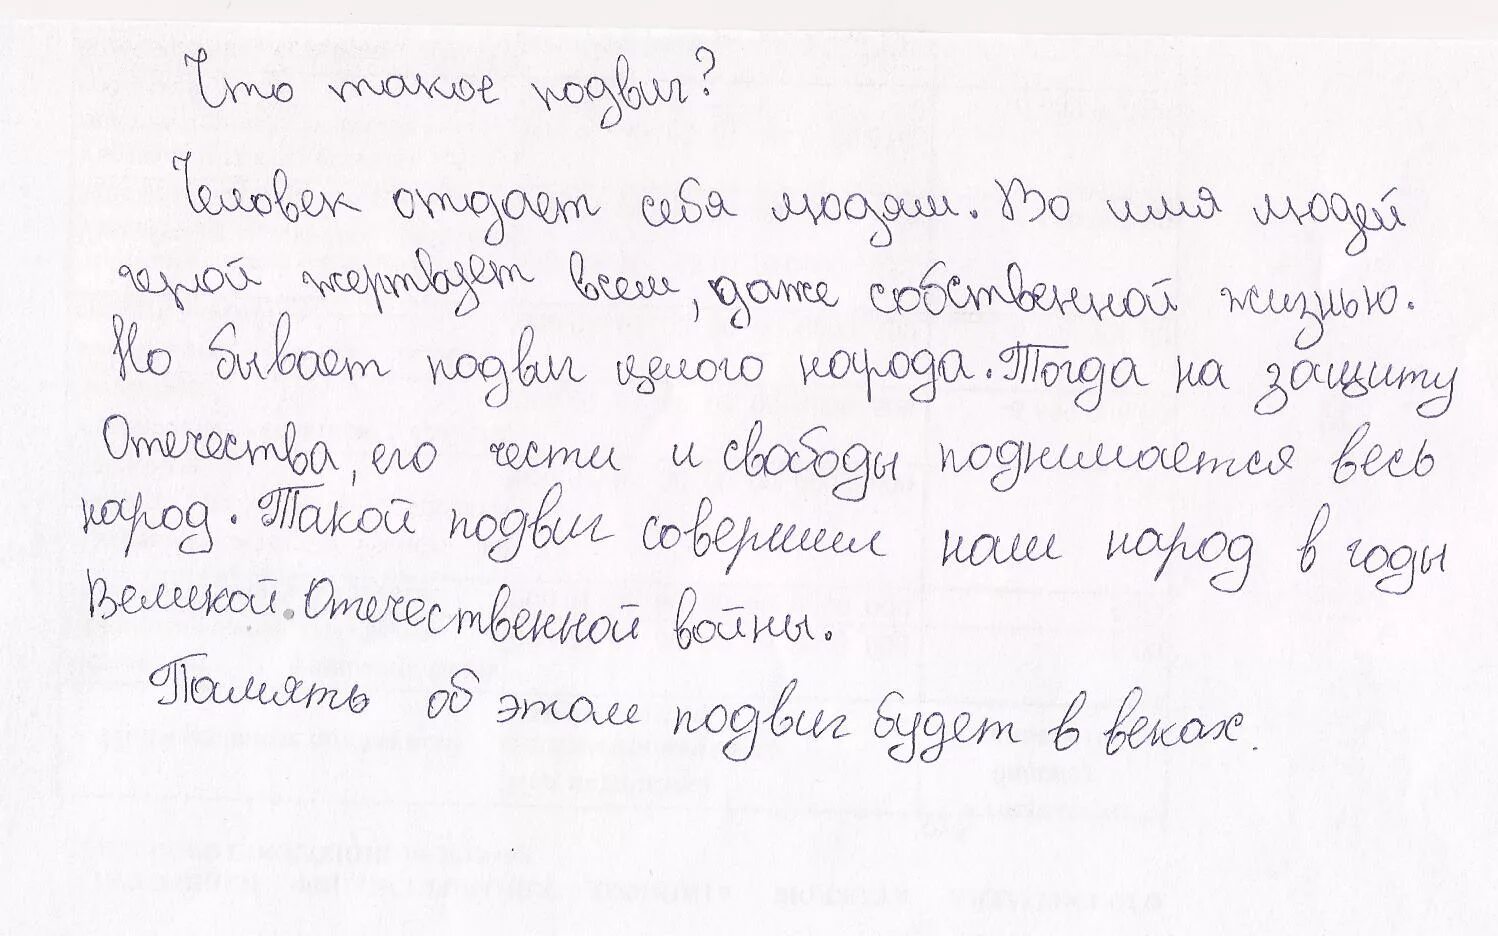 Что такое подвиг?
Человек отдает себя людям. Во имя людей
герой жертвует всем, даже собственной жизнью.
Но бывает подвиг целого народа. Тогда на защиту
Отечества, его чести и свободы поднимается весь
народ. Такой подвиг совершил наш народ в годы
Великой. Отечественной войны.
Память об этом подвиг будет в веках.